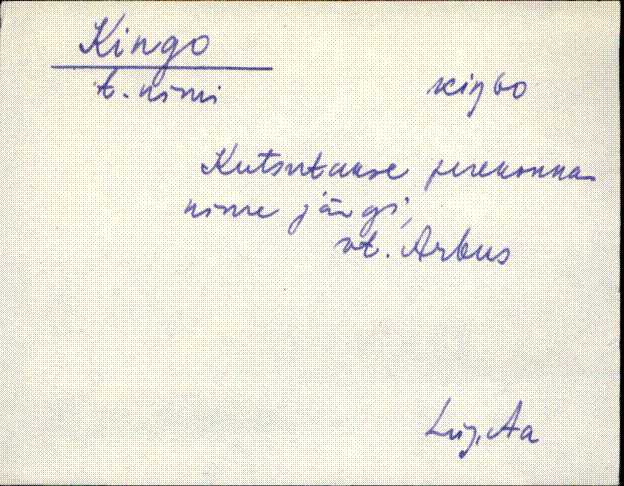 Kingo
t. nimi kiŋGo
Kutsutakse perekonna-
nime järgi,
vt. Arbus
Lüg, Aa